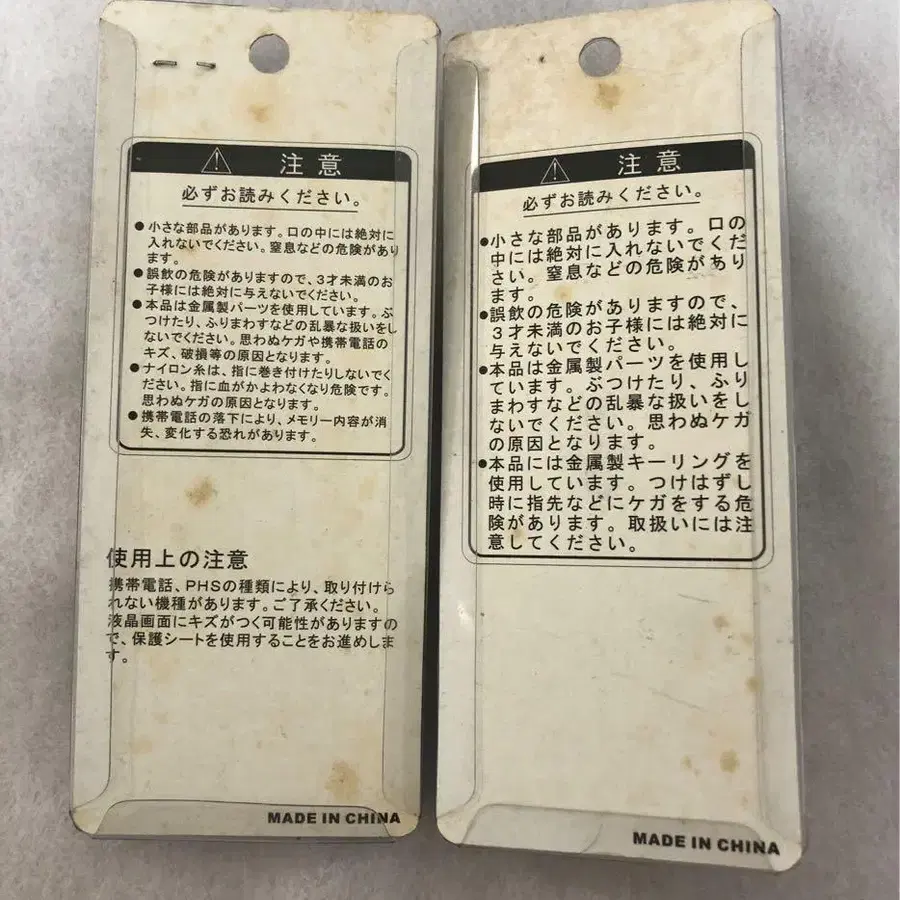 注意
必ずお読みください。
●小さな部品があります。口の中には絶対に
入れないでください。窒息などの危険があり
ます。
●誤飲の危険がありますので、3才未満のお
子様には絶対に与えないでください。
●本品は金属製パーツを使用しています。ぶ
つけたり、ふりまわすなどの乱暴な扱いをし
ないでください。思わぬケガや携帯電話の
キズ、破損等の原因となります。
●ナイロン糸は、指に巻き付けたりしないでく
ださい。指に血がかよわなくなり危険です。
思わぬケガの原因となります。
●携帯電話の落下により、メモリー内容が消
失、変化する恐れがあります。
使用上の注意
携帯電話、PHSの種類により、取り付けら
れない機種があります。ご了承ください。
液晶画面にキズがつく可能性がありますの
で、保護シートを使用することをお進めしま
す。
MADE IN CHINA
注意
必ずお読みください。
●小さな部品があります。口の
中には絶対に入れないでくだ
さい。窒息などの危険があり
ます。
●誤飲の危険がありますので、
3才未満のお子様には絶対に
与えないでください。
●本品は金属製パーツを使用し
ています。ぶつけたり、ふり
まわすなどの乱暴な扱いをし
ないでください。思わぬケガ
の原因となります。
●本品には金属製キーリングを
使用しています。つけはずし
時に指先などにケガをする危
険があります。取扱いには注
意してください。
MADE IN CHINA